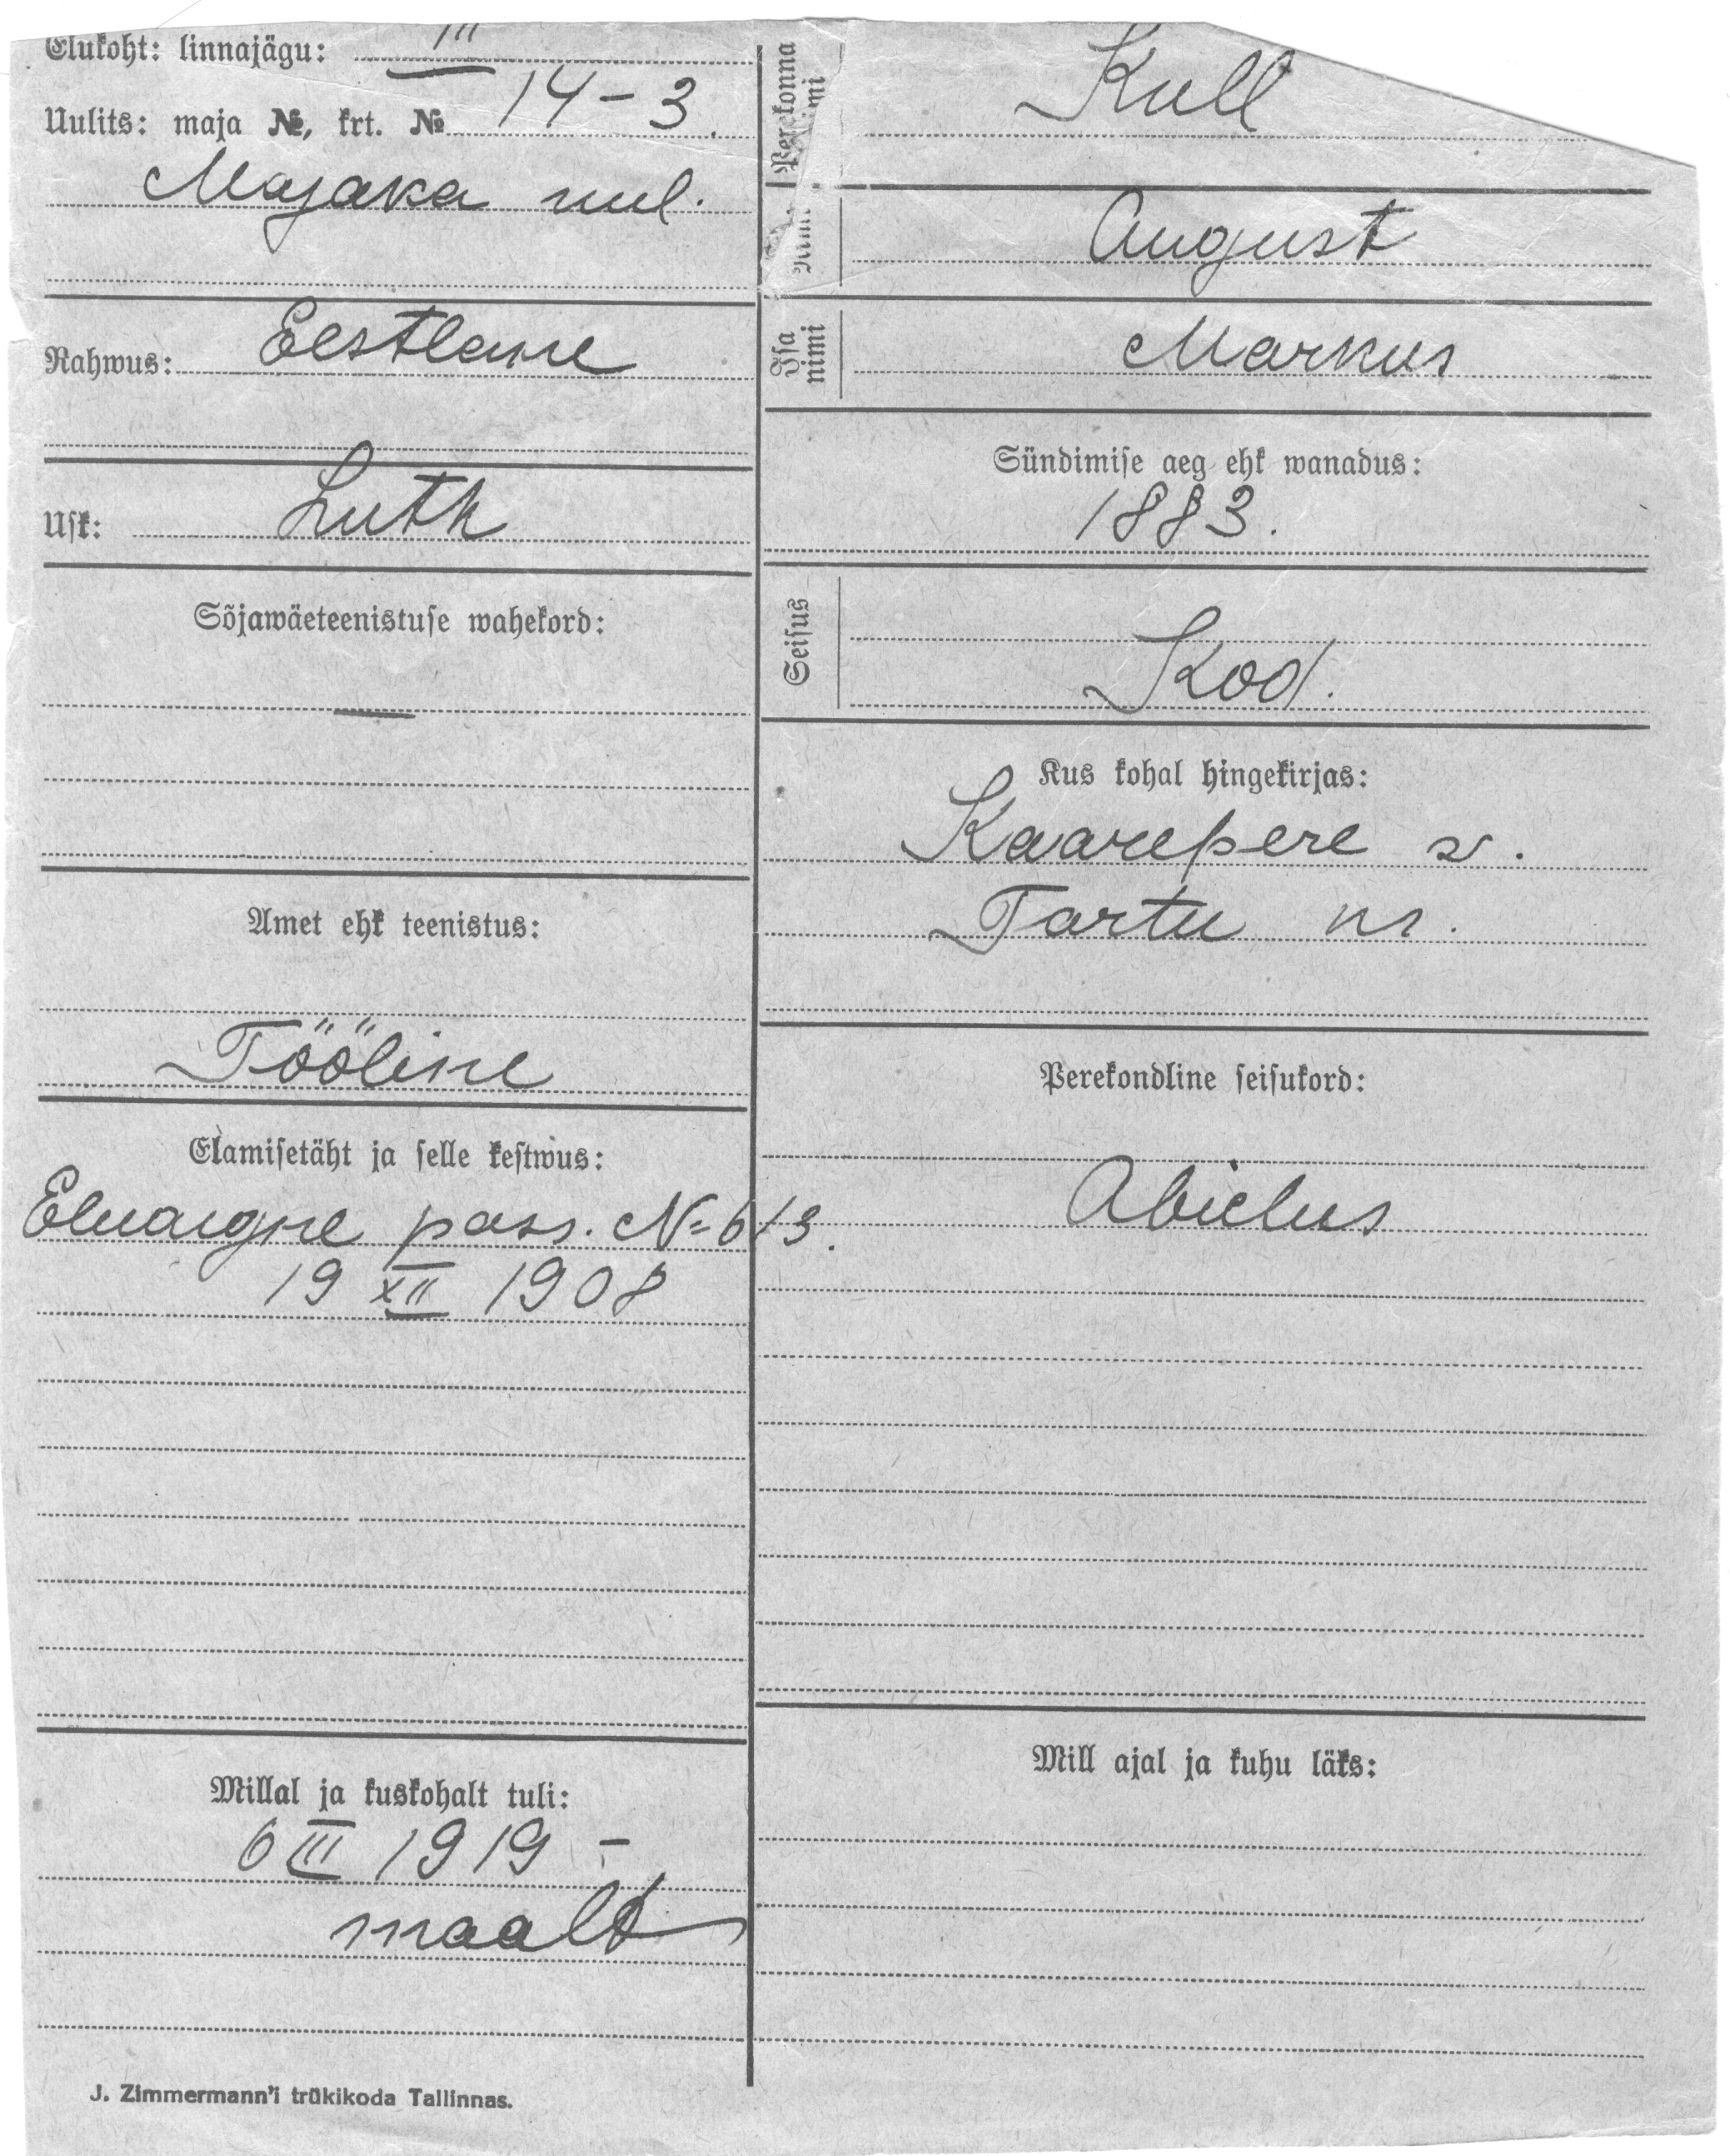 Elukoht: linnajägu: III
Uulits: maja №, krt. № 14-3.
Majaka uul.
Rahwus: Eestlane
Usk: Luth
Sõjawäeteenistuse wahekord:
—
Amet ehk teenistus:
Tööline
Elamisetäht ja selle kestwus:
Eluaigne pass. N=613.
19 XII 1908
Millal ja kuskohalt tuli:
6 III 1919 –
maalt
J. Zimmermann'i trükikoda Tallinnas.
Perekonna nimi Kull
Nimi August
Isa nimi Markus
Sündimise aeg ehk wanadus:
1883.
Seisus Kod.
Kus kohal hingekirjas:
Kaarepere v.
Tartu m.
Perekondline seisukord:
Abielus
Mill ajal ja kuhu läks: